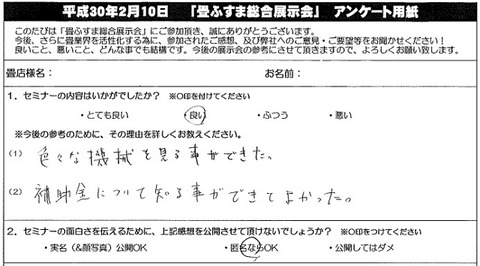 平成30年2月10日 「畳ふすま総合展示会」 アンケート用紙
このたびは「畳ふすま総合展示会」にご参加頂き、誠にありがとうございます。
今後、さらに畳業界を活性化する為に、参加されたご感想、及び弊社へのご意見・ご要望等をお聞かせください！
良いこと、悪いこと、どんな事でも結構です。今後の展示会の参考にさせて頂きますので、よろしくお願い致します。
畳店様： お名前：
1．セミナーの内容はいかがでしたか？ ※○印を付けてください
・とても良い ・良い ・ふつう ・悪い
※今後の参考のために、その理由を詳しくお教えください。
(1) 色々な機械を見る事ができた。
(2) 補助金について知る事ができてよかった。
2．セミナーの面白さを伝えるために、上記感想を公開させて頂けないでしょうか？ ※○印をつけてください
・実名（&顔写真）公開OK ・匿名ならOK ・公開してはダメ